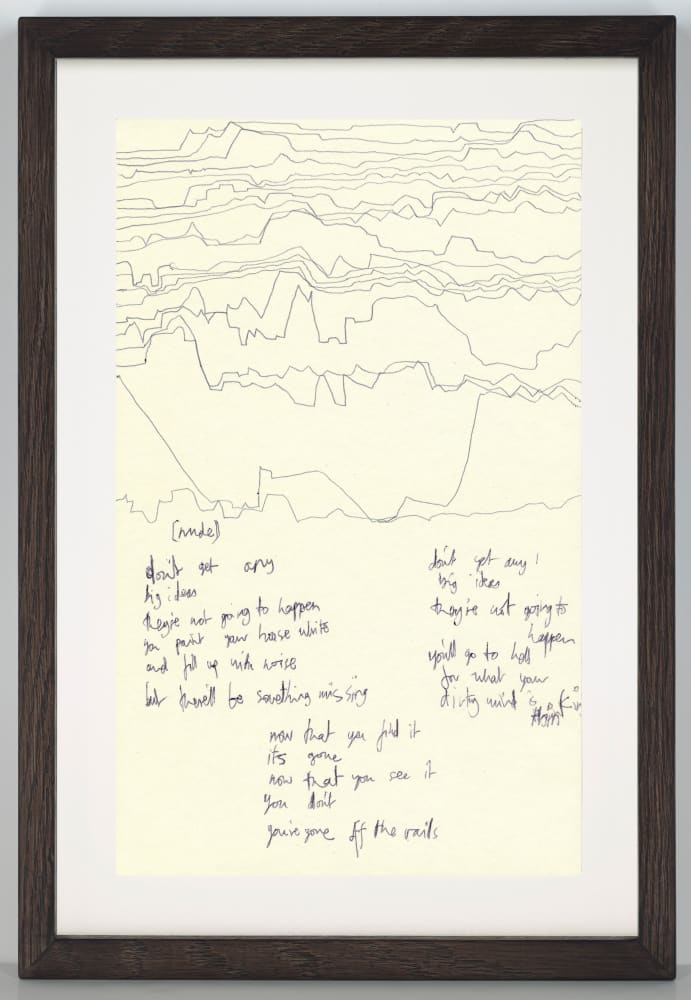 [nude]
don't get any
big ideas
they're not going to happen
you paint your house white
and fill up with noise
but there'll be something missing
don't get any
big ideas
they're not going to
happen
you'll go to hell
for what your
dirty mind is
thinkin
now that you find it
its gone
now that you see it
you don't
you're gone off the rails